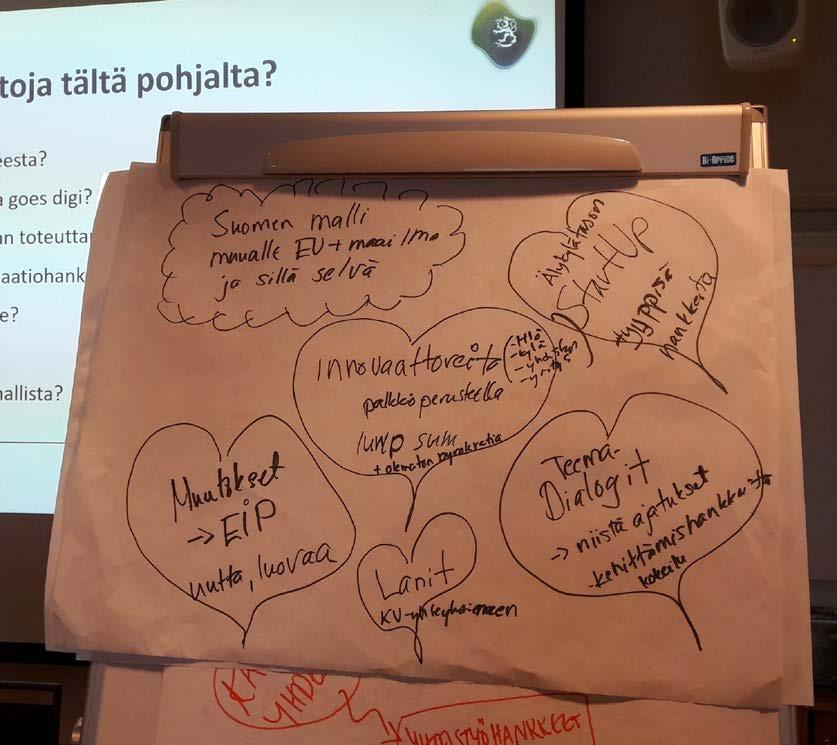 toja tältä pohjalta?
eesta?
a goes digi?
an toteuttaa
aatiohank
e?
allista?
Bi-Office
Suomen malli
muualle EU + maailma
ja sillä selvä
Älykylätason
StartUp
tyyppisiä
hankkeita
Innovaattoreita
- Hlö
- kylä
- yhdistys
- yritys
palkkio perusteella
lump sum
+ olematon byrokratia
Muutokset
→ EIP
uutta, luovaa
Lanit
KV-yhteyksineen
Teema-
Dialogit
→ niistä ajatukset
- kehittämishankkeista
YHD
YHTEISTYÖHANKKEET